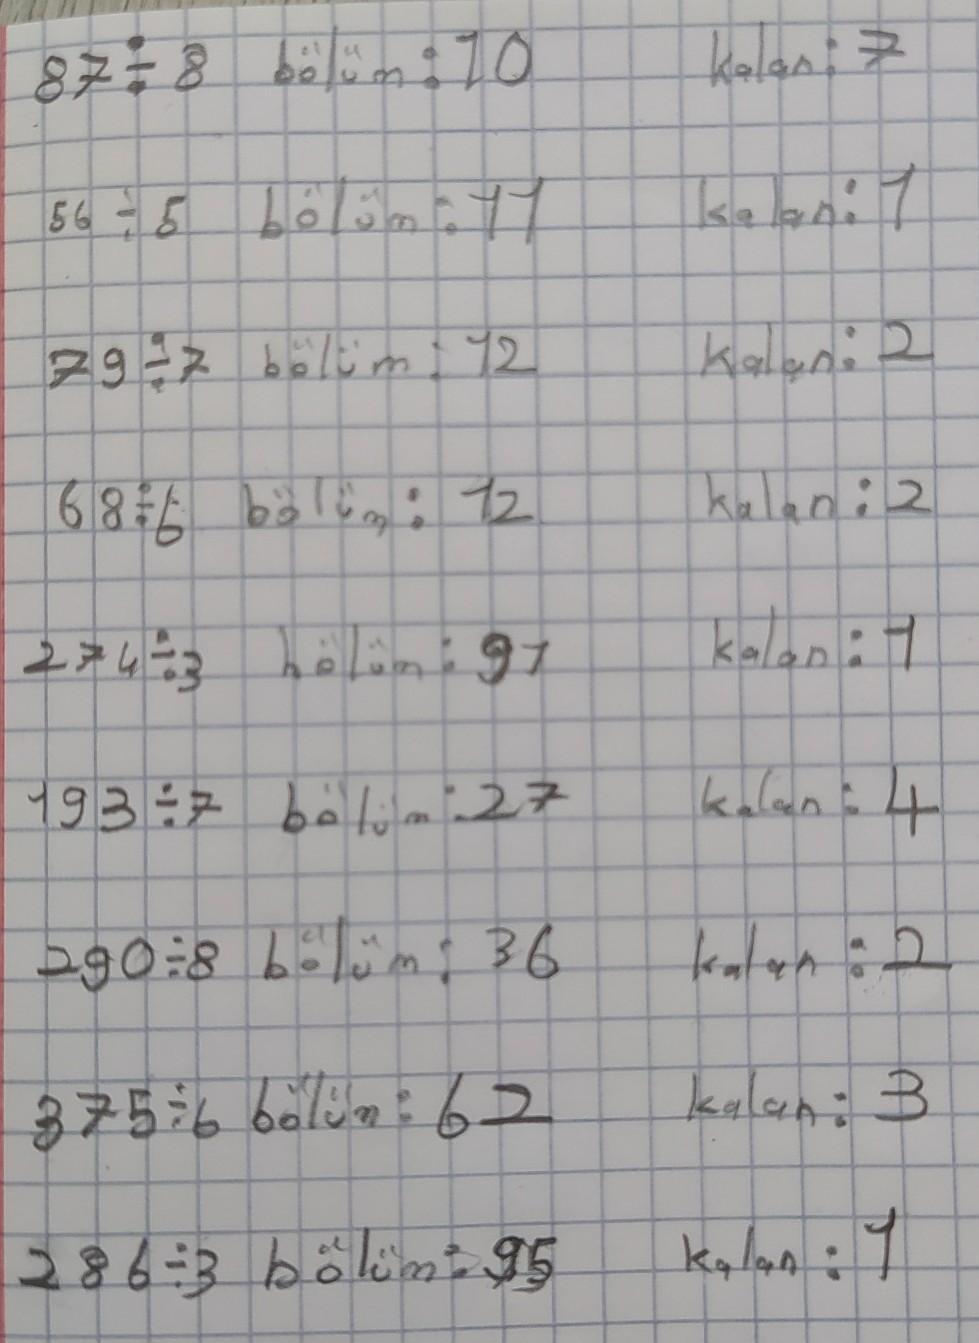 87÷8 bölüm:10 kalan:7
56÷5 bölüm:11 kalan:1
79÷7 bölüm:12 kalan:2
68÷6 bölüm:12 kalan:2
274÷3 bölüm:91 kalan:1
193÷7 bölüm:27 kalan:4
290÷8 bölüm:36 kalan:2
375÷6 bölüm:62 kalan:3
286÷3 bölüm:95 kalan:1